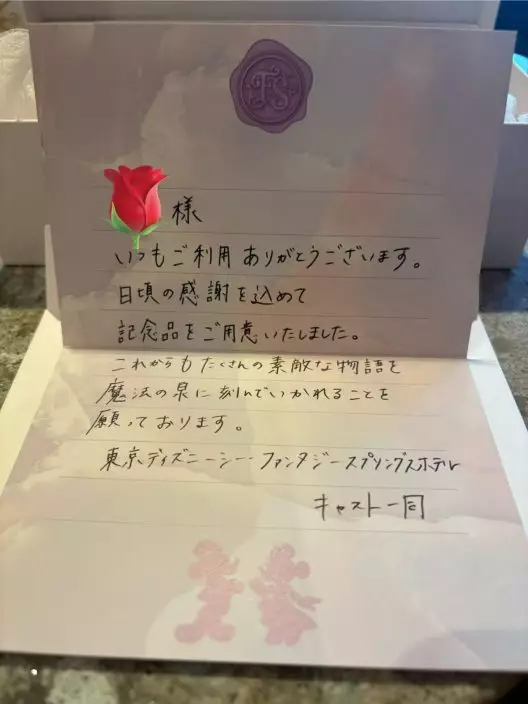 FS
様
いつもご利用ありがとうございます。
日頃の感謝を込めて
記念品をご用意いたしました。
これからもたくさんの素敵な物語を
魔法の泉に刻んでいかれることを
願っております。
東京ディズニーシー・ファンタジースプリングスホテル
キャスト一同